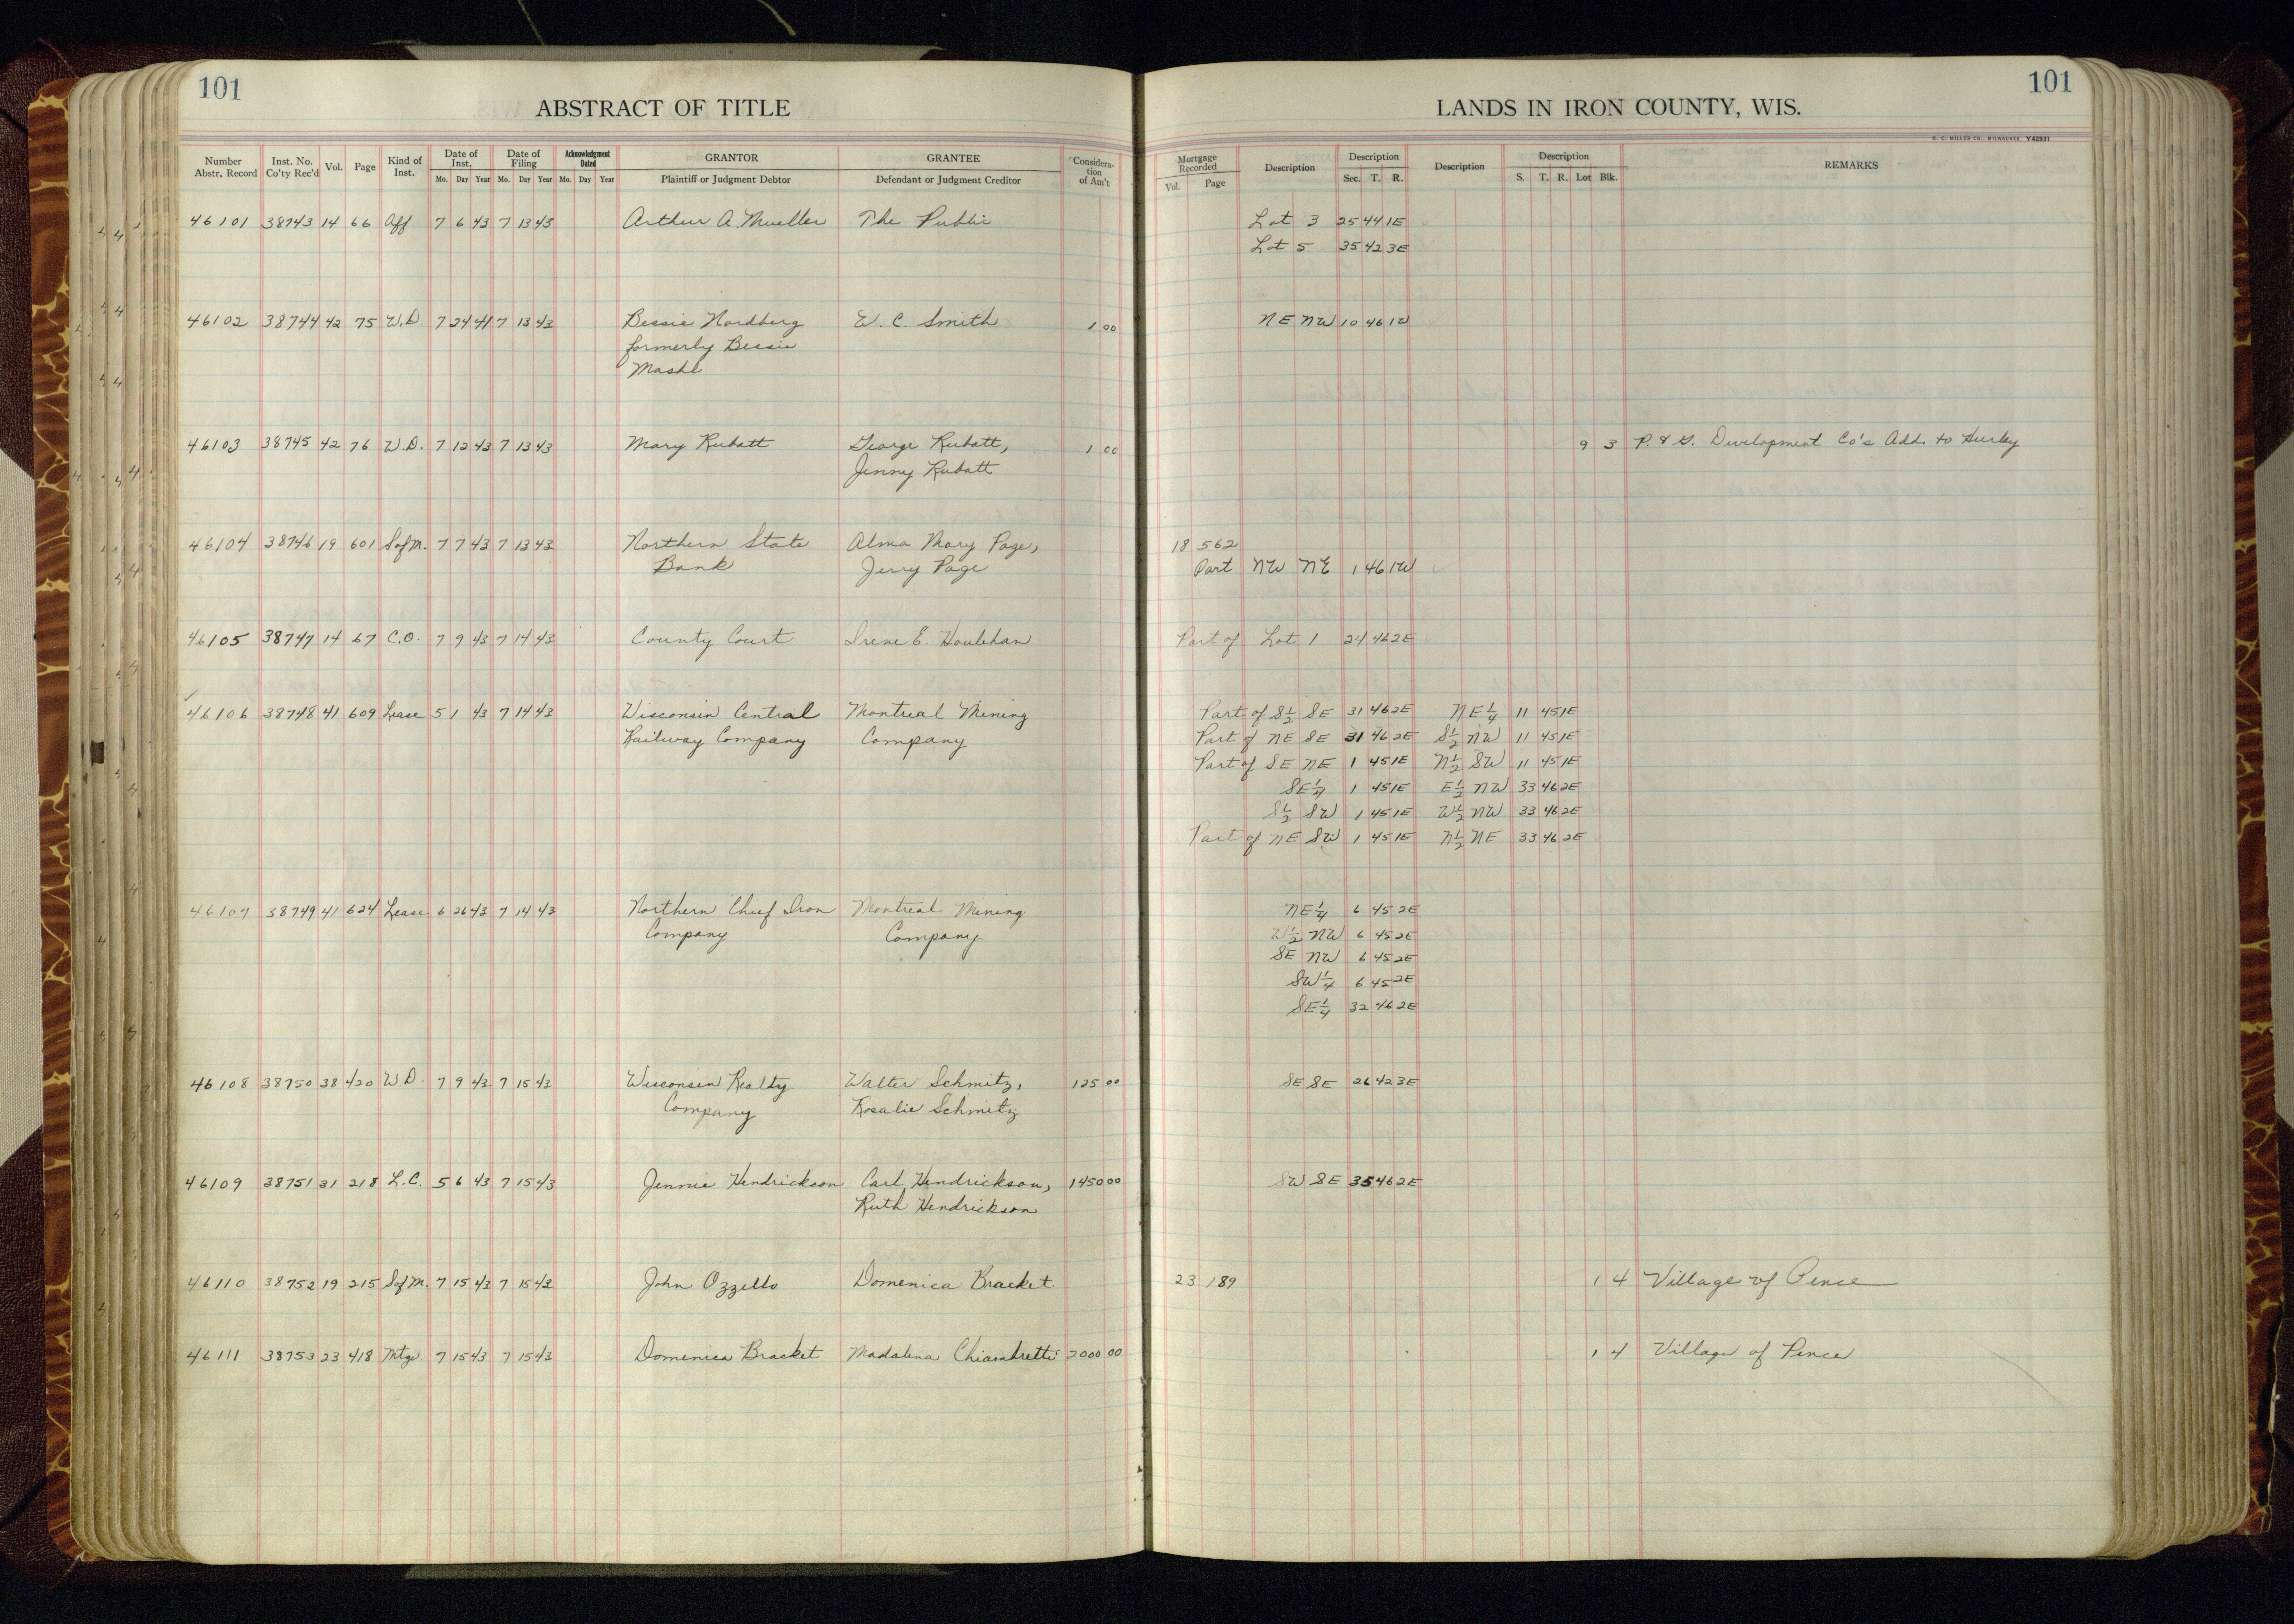 101
ABSTRACT OF TITLE
Number Abstr. Record | Inst. No. Co'ty Rec'd | Vol. | Page | Kind of Inst. | Date of Inst. Mo. Day Year | Date of Filing Mo. Day Year | Acknowledgment Dated Mo. Day Year | GRANTOR Plaintiff or Judgment Debtor | GRANTEE Defendant or Judgment Creditor | Consideration of Am't
101
LANDS IN IRON COUNTY, WIS.
H. C. MILLER CO., MILWAUKEE Y42931
Mortgage Recorded Vol. Page | Description | Description Sec. T. R. | Description | Description S. T. R. Lot Blk. | REMARKS
46101 38743 14 66 Aff. 7 6 43 7 13 43 Arthur A. Mueller The Public Lot 3 25 44 1E
Lot 5 35 42 3E
46102 38744 42 75 W.D. 7 24 41 7 13 43 Bessie Nordberg W. C. Smith 1 00 NE NW 10 46 1W
formerly Bessie
Mashl
46103 38745 42 76 W.D. 7 12 43 7 13 43 Mary Rubatt George Rubatt, 1 00 9 3 P. & G. Development Co's Add. to Hurley
Jenny Rubatt
46104 38746 19 601 S of M. 7 7 43 7 13 43 Northern State Alma Mary Page, 18 562
Bank Jerry Page Part NW NE 1 46 1W
46105 38747 14 67 C.O. 7 9 43 7 14 43 County Court Irene E. Houlehan Part of Lot 1 24 46 2E
46106 38748 41 609 Lease 5 1 43 7 14 43 Wisconsin Central Montreal Mining Part of S½ SE 31 46 2E NE¼ 11 45 1E
Railway Company Company Part of NE SE 31 46 2E S½ NW 11 45 1E
Part of SE NE 1 45 1E N½ SW 11 45 1E
SE¼ 1 45 1E E½ NW 33 46 2E
S½ SW 1 45 1E W½ NW 33 46 2E
Part of NE SW 1 45 1E N½ NE 33 46 2E
46107 38749 41 624 Lease 6 26 43 7 14 43 Northern Chief Iron Montreal Mining NE¼ 6 45 2E
Company Company W½ NW 6 45 2E
SE NW 6 45 2E
SW¼ 6 45 2E
SE¼ 32 46 2E
46108 38750 38 420 W.D. 7 9 43 7 15 43 Wisconsin Realty Walter Schmitz, 125 00 SE SE 26 42 3E
Company Rosalie Schmitz
46109 38751 31 218 L.C. 5 6 43 7 15 43 Jennie Hendrickson Carl Hendrickson, 1450 00 SW SE 35 46 2E
Ruth Hendrickson
46110 38752 19 215 S of M. 7 15 43 7 15 43 John Ozzello Domenica Bracket 23 189 1 4 Village of Pence
46111 38753 23 418 Mtge 7 15 43 7 15 43 Domenica Bracket Madalena Chiambretti 2000 00 1 4 Village of Pence